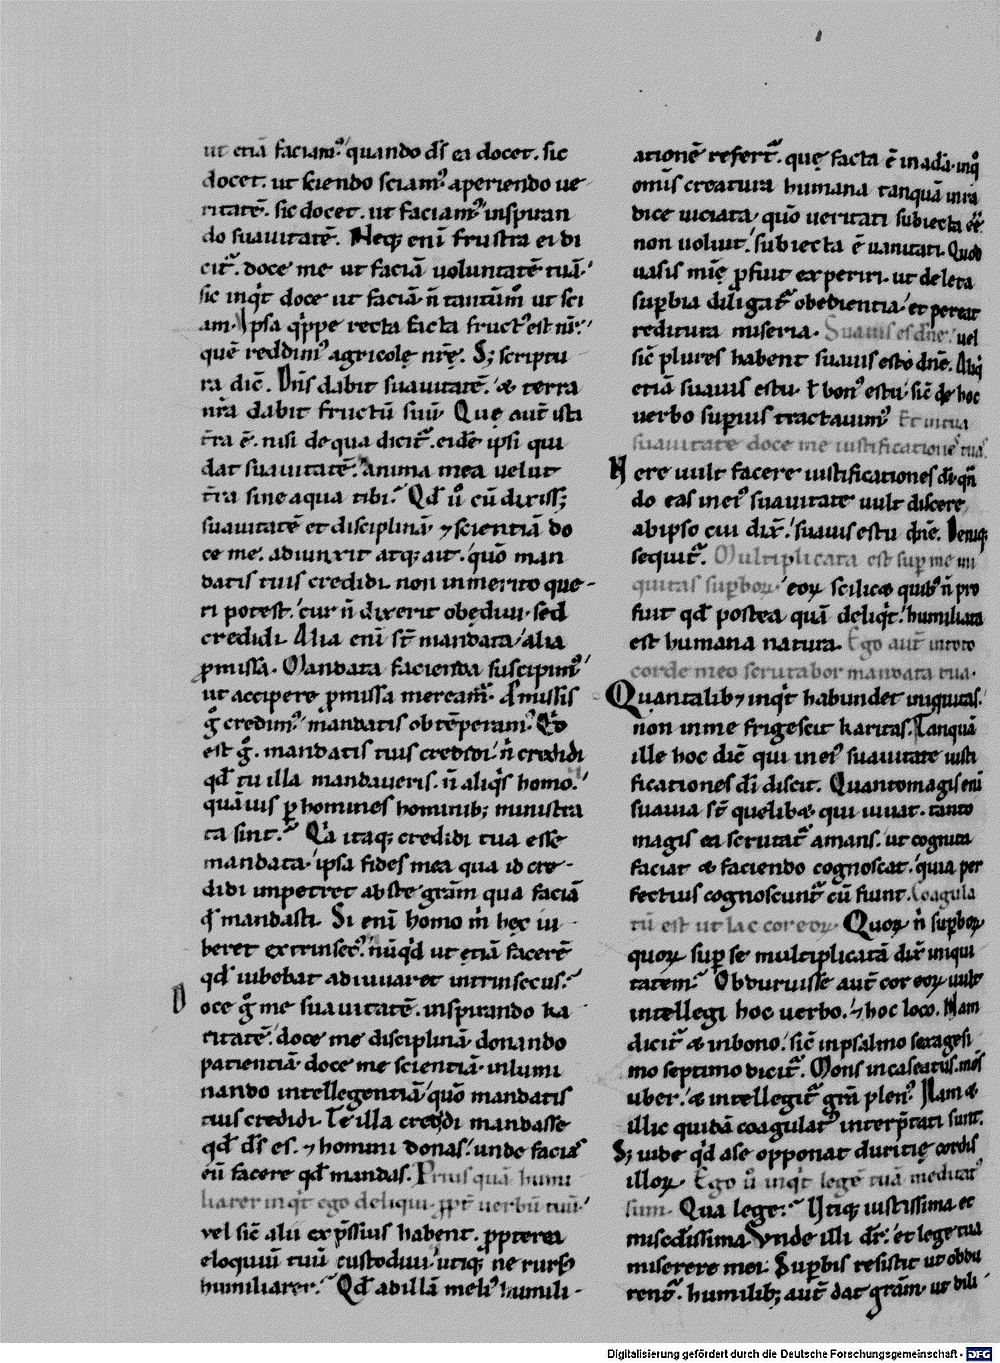 ut etiā faciam᷒ quando dſ̄ ea docet. ſic
docet. ut ſciendo ſciam᷒ aperiendo ue-
ritatē. ſic docet. ut faciam᷒ inſpiran
do ſuauitatē. Neq; eni frustra ei di
cit᷑. doce me ut faciā uoluntatē tuā.
ſic inq̇t doce ut faciā n̄ tantūm̊ ut ſci
am. Ipſa q̇ppe recta facta fruct᷒ eſt nr̄.
quē reddim᷒ agricolę nr̄ę. S; ſcriptu
ra dic̄. Dn̄s dabit ſuauitatē. & terra
nr̄a dabit fructū ſuū. Quę aut̄ iſta
tr̄a ē. niſi de qua dicit᷑. eidē ipſi qui
dat ſuauitatē. anima mea uelut
tr̄a ſine aqua tibi. Qd̄ ů cū dixiſſ;
ſuauitatē et diſciplinā ⁊ ſcientiā do
ce me. adiunxit atq; ait. quō man
datis tuis credidi. non inmerito que-
ri potest. cur n̄ dixerit obędiui. ſed
credidi. Alia eni ſt̄ mandata alia
ꝓmiſſa. Mandata facienda ſuſcipim᷒
ut accipere ꝓmiſſa meream᷑. Ꝓmiſſis
g̊ credim᷒ mandatis obtēperam᷒. Qd̄
est g̊. mandatis tuis credidi. n̄ credidi
qd̄ tu illa mandaueris. n̄ aliq̇s homo.
quāuis ꝑ homines hominib; miniſtra
ta ſint. Q̇a itaq; credidi tua eſſe
mandata. ipſa fides mea qua id cre-
didi impetret abſte gr̄am qua faciā
qd̄ mandaſti. Si enī homo m̊ hęc iu-
beret extrinſec᷒. nūq̇d ut etiā facerē
qd̄ iubebat adiuuaret intrinſecus.
Doce g̊ me ſuauitatē. inſpirando ka
ritatē. doce me diſciplinā. donando
patientiā. doce me ſcientiā. inlumi
nando intellegentiā. quō mandatis
tuis credidi. Te illa credidi mandaſſe
qd̄ dſ̄ es. ⁊ homini donas. unde facias
eū facere qd̄ mandas. Priusquā humi
liarer inq̇t ego deliqui. ꝓpt̄ uerbū tuū
vel ſic̄ alii exp̄ſſius habent. ꝓpterea
eloquiū tuū cuſtodiui. utiq; ne rurſ᷒
humiliarer. Qd̄ ad illā meli᷒ humili-
ationē refert᷑. quę facta ē in adā. in q̊
omīs creatura humana tanquā in ra
dice uiciata. quō ueritati ſubiecta eē
non uoluit. ſubiecta ē uanitati. Quod
uaſis mię ꝓfuit experiri. ut deleta
ſuꝑbia diligat᷑ obędientia. et pereat
reditura miſeria. Suauis es dn̄e. uel
ſic̄ plures habent ſuauis es tu dn̄e. Aliq̇
etiā ſuauis es tu. ł bon᷒ es tu. ſic̄ de hoc
uerbo ſuꝑius tractauim᷒. Et in tua
ſuauitate doce me iuſtificationeſ tuaſ.
Vere uult facere iuſtificationes dī. qn̄
do eas in ei᷒ ſuauitate uult diſcere
ab ipſo cui dix̄. ſuauis es tu dn̄e. Deniq;
ſequit᷑. Multiplicata est ſuꝑ me ini
quitas ſuꝑboꝝ. eoꝝ ſcilic& quib᷒ n̄ pro
fuit qd̄ poſtea quā deliq̇t. humiliata
est humana natura. Ego aut̄ in toto
corde meo ſcrutabor mandata tua.
Quantalib; inq̇t habundet iniquitas.
non in me frigeſcit karitas. Tanquā
ille hoc dic̄ qui in ei᷒ ſuauitate iuſti
ficationes dī diſcit. Quanto magis enī
ſuauia ſt̄ quelib& qui iuuat. tanto
magis ea ſcrutat᷑ amans. ut cognita
faciat & faciendo cognoſcat. quia per
fectius cognoſcunt᷑ cū fiunt. Coagula
tū est ut lac cor eoꝝ. Quoꝝ n̄ ſuꝑboꝝ
quoꝝ ſuꝑ ſe multiplicatā dix̄ iniqui
tatem. Obduruiſſe aut̄ cor eoꝝ uult
intellegi hoc uerbo. ⁊ hoc loco. Nam
dicit᷑ & in bono. ſic̄ in pſalmo ſexageſi
mo ſeptimo dicit᷑. Mons incaſeatus. mōs
uber. & intellegit᷑ gr̄a plen᷒. Nam &
illic quidā coagulat᷒ interp̄tati ſunt.
S; uide q̇d aſe opponat duritię cordis
illoꝝ. Ego ů inq̇t legē tuā meditat᷒
ſum. Qua lege. Utiq; iuſtiſſima et
miſcdiſſima. Unde illi dr̄. et lege tua
miſerere mei. Suꝑbis reſiſtit ut obdu
rent᷑. humilib; aut̄ dat gr̄am. ut dili
Digitalisierung gefördert durch die Deutsche Forschungsgemeinschaft - DFG